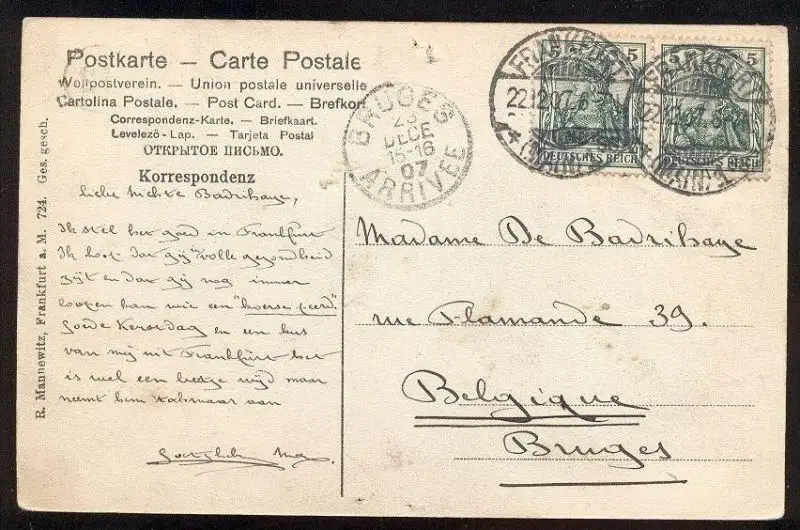 Postkarte — Carte Postale
Weltpostverein. — Union postale universelle
Cartolina Postale. — Post Card. — Brefkort
Correspondenz-Karte. — Briefkaart.
Levelező-Lap. — Tarjeta Postal
ОТКРЫТОЕ ПИСЬМО.
Korrespondenz
R. Mannewitz, Frankfurt a. M. 724. Ges. gesch.
BRUGES
23
DECE
15-16
07
ARRIVÉE
FRANKFURT
22.12.07.
(MAIN)
5
5
DEUTSCHES REICH
FRANKFURT
22.12.07.
(MAIN)
5
5
DEUTSCHES REICH
liebe nichte Badrihaye,
Ik stel het goed in Frankfurt
Ik hoop dat gij volle gezondheid
zijt en dat gij nog immer
loopen kan wie een "koerse peerd".
Goede Kerstdag en een kus
van mij uit Frankfurt het
is wel een beetje wijd maar
neemt hem aan
Madame De Badrihaye
rue Flamande 39.
Belgique
Bruges